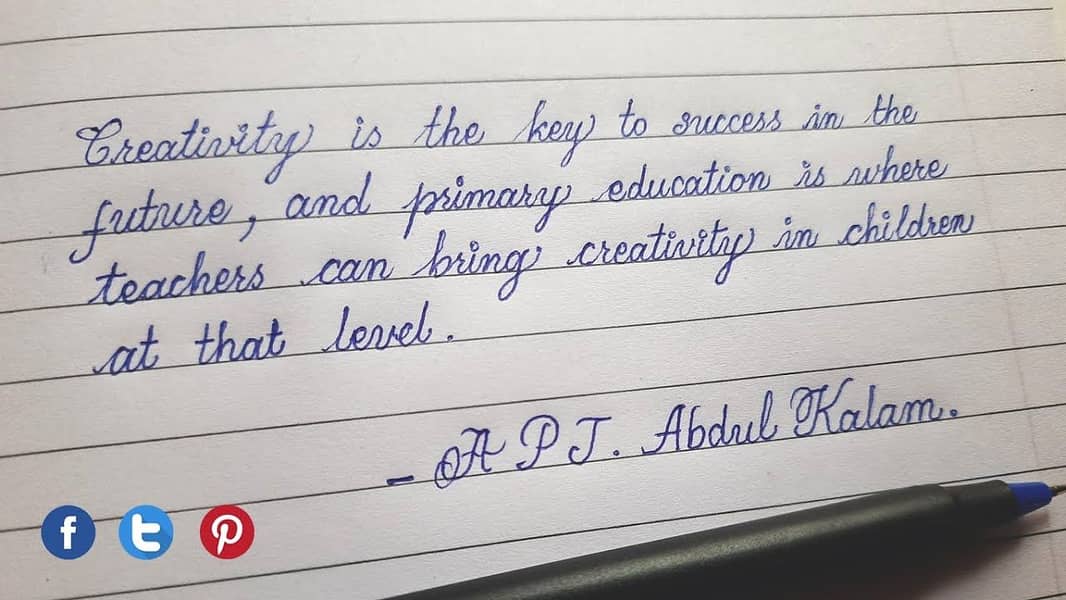 Creativity is the key to success in the
future, and primary education is where
teachers can bring creativity in children
at that level.
- A P J. Abdul Kalam.